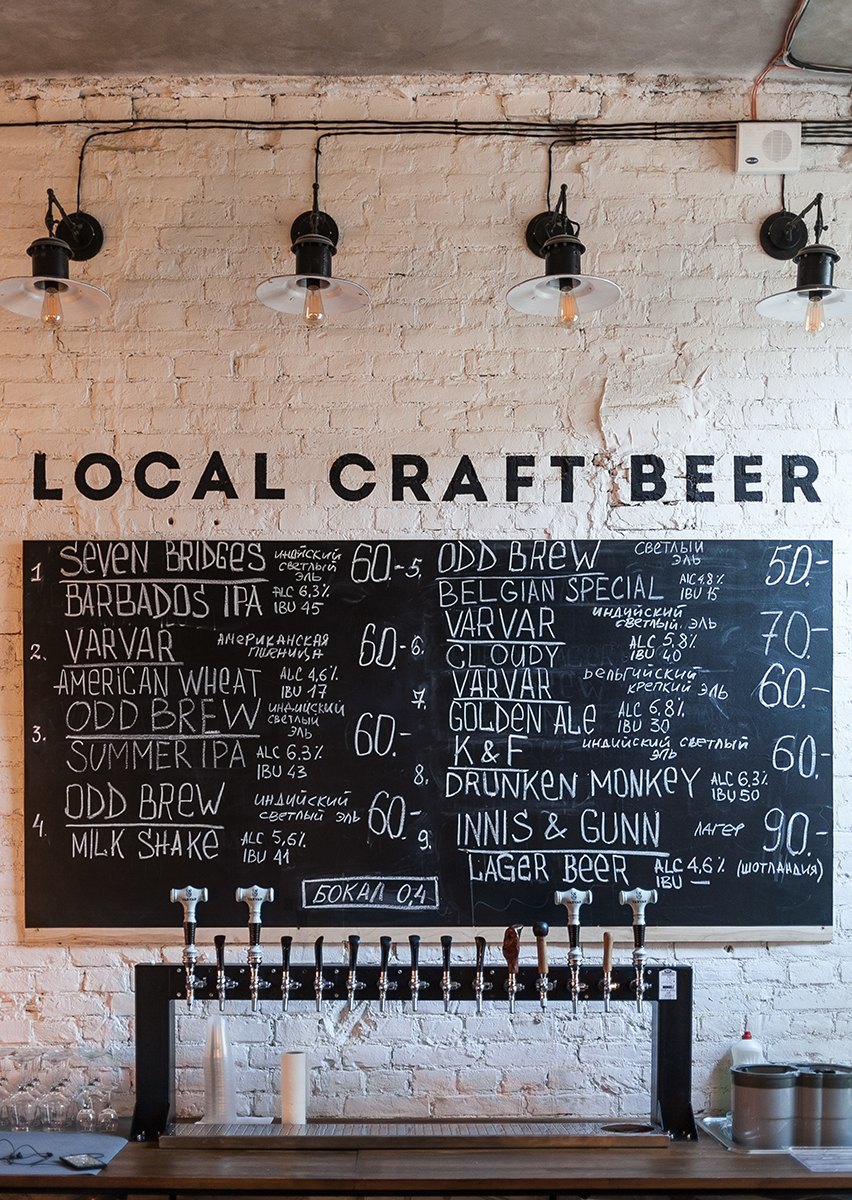 LOCAL CRAFT BEER
1 SEVEN BRIDGES ИНДИЙСКИЙ СВЕТЛЫЙ ЭЛЬ 60.-
BARBADOS IPA ALC 6,3% IBU 45
2. VARVAR АМЕРИКАНСКАЯ ПШЕНИЦА 60.-
AMERICAN WHEAT ALC 4,6% IBU 17
3. ODD BREW ИНДИЙСКИЙ СВЕТЛЫЙ ЭЛЬ 60.-
SUMMER IPA ALC 6.3% IBU 43
4. ODD BREW ИНДИЙСКИЙ СВЕТЛЫЙ ЭЛЬ 60.-
MILK SHAKE ALC 5,6% IBU 41
БОКАЛ 0,4
5. ODD BREW СВЕТЛЫЙ ЭЛЬ 50.-
BELGIAN SPECIAL ALC 4,8% IBU 15
6. VARVAR ИНДИЙСКИЙ СВЕТЛЫЙ ЭЛЬ 70.-
CLOUDY ALC 5,8% IBU 40
7. VARVAR БЕЛЬГИЙСКИЙ КРЕПКИЙ ЭЛЬ 60.-
GOLDEN ALE ALC 6,8% IBU 30
8. K & F ИНДИЙСКИЙ СВЕТЛЫЙ ЭЛЬ 60.-
DRUNKEN MONKEY ALC 6,3% IBU 50
9. INNIS & GUNN ЛАГЕР 90.-
LAGER BEER ALC 4,6% (ШОТЛАНДИЯ) IBU —